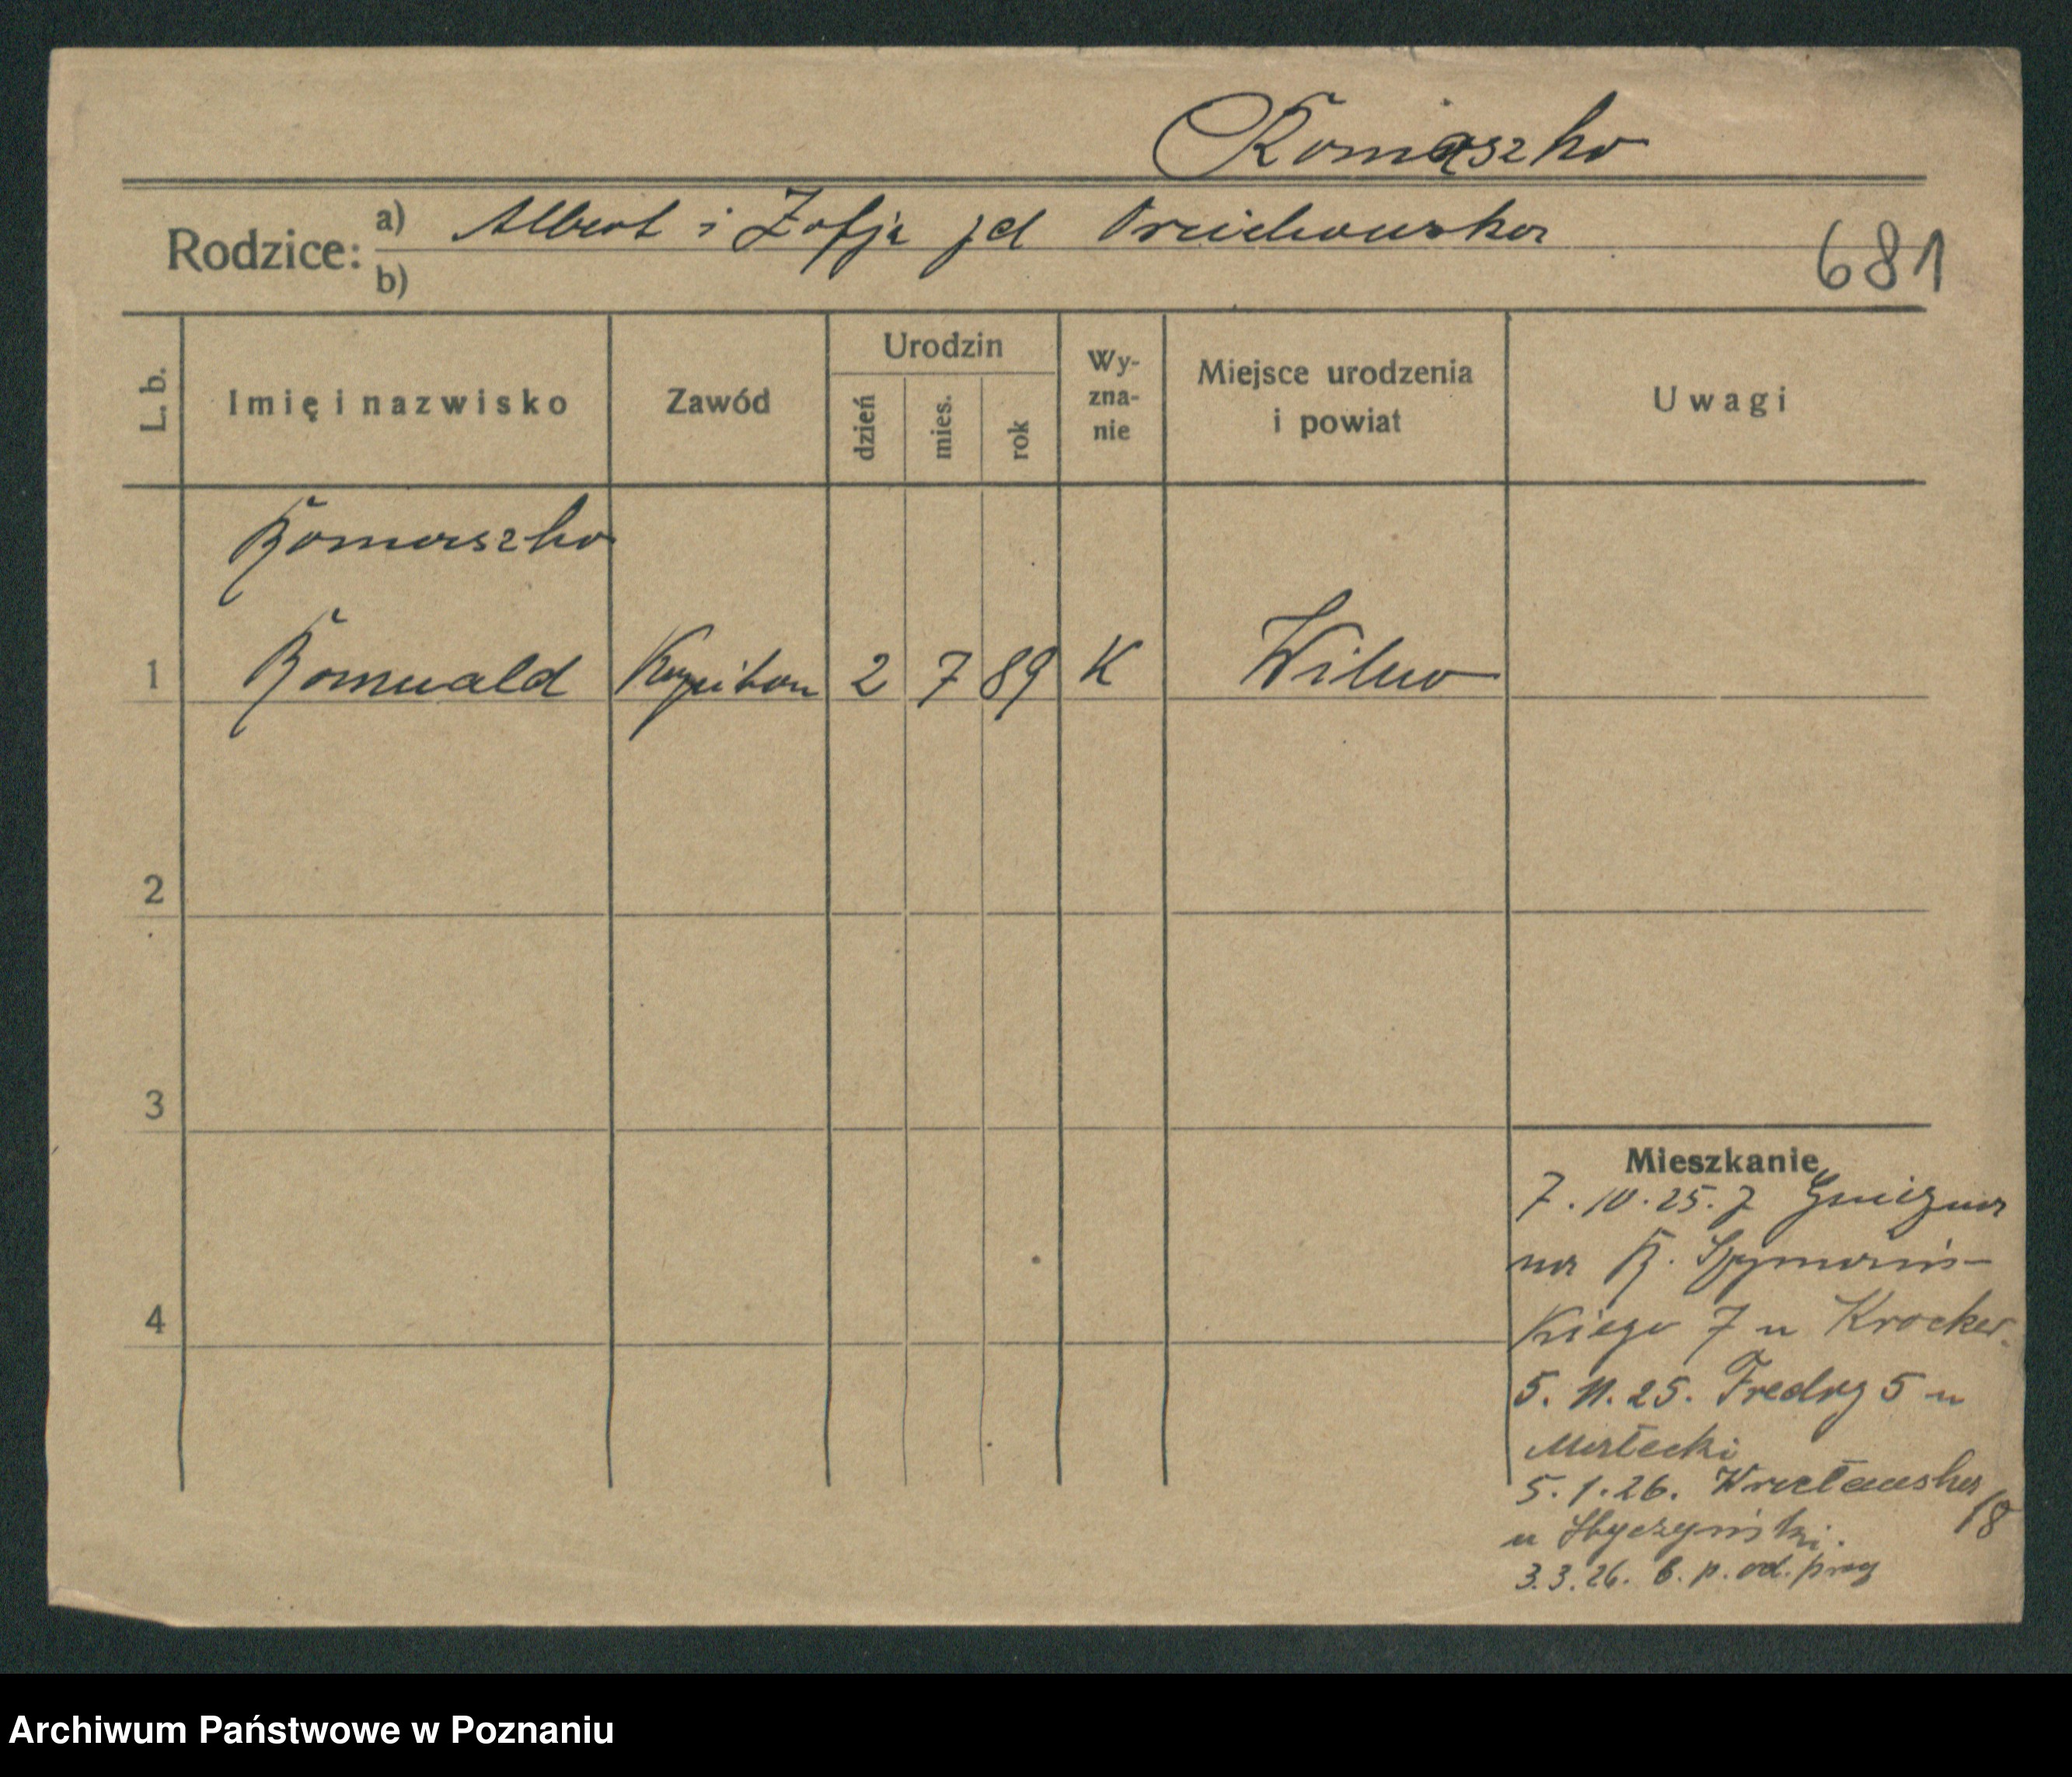 Romaszko
Rodzice: a) Albert i Zofja zd Orzechowska
b)
681
L. b. Imię i nazwisko Zawód Urodzin dzień mies. rok Wy-zna-nie Miejsce urodzenia i powiat Uwagi
Romaszko
1 Romuald Kapitan 2 7 89 K Wilno
2
3
Mieszkanie
7.10.25. z Gniezna
na R. Szymańs-
4
kiego 7 u Krocker
5.11.25. Fredry 5 u
Małecki
5.1.26. Wrocławska
18
u
3.3.26. b. p. od.
Archiwum Państwowe w Poznaniu